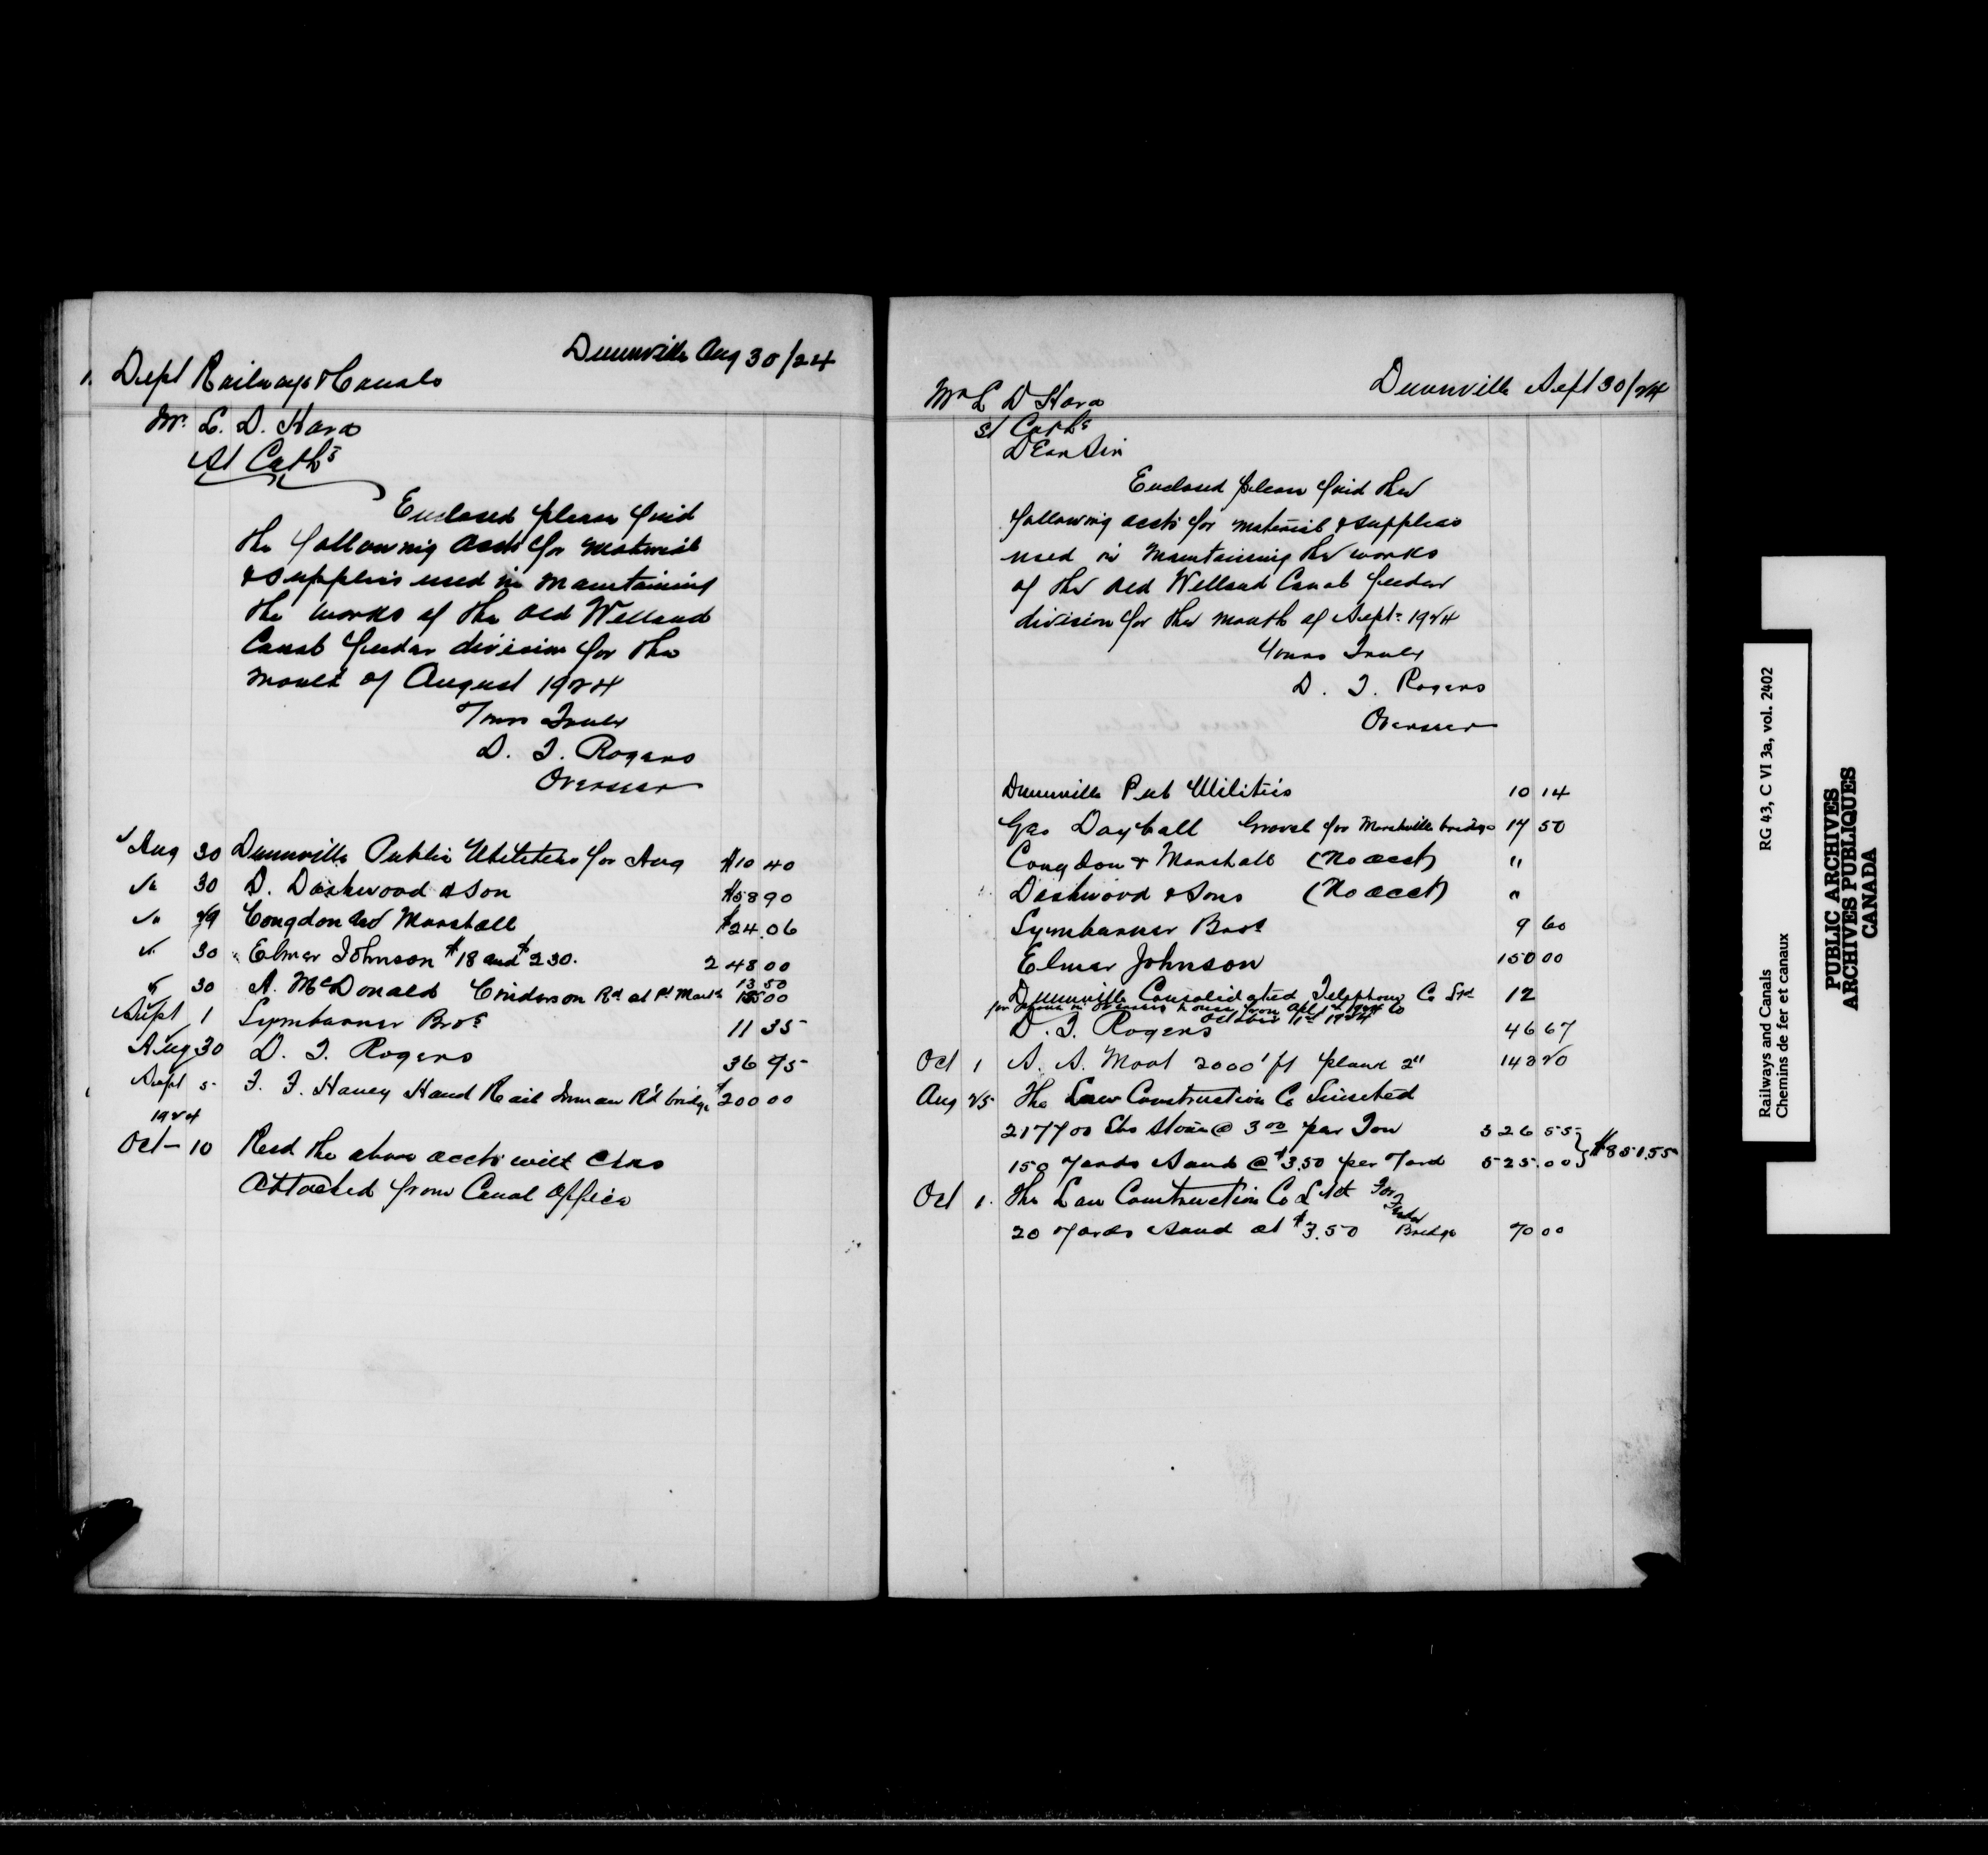 Dunnville Aug 30/24
Dept Railways & Canals
Mr. L. D. Hara
St Caths
Enclosed please find
the following accts for material
& supplies used in maintaining
the works of the old Welland
Canal feeder division for the
month of August 1924
Yours Truly
D. T. Rogers
Overseer
Aug 30 Dunnville Public Utilities for Aug $10 40
" 30 D. Dashwood & Son $58 90
" 29 Congdon and Marshall $24.06
" 30 Elmer Johnson $18 and $230. 248 00
" 30 A. McDonald Rd at Pt 13 50
Sept 1 Symbanner Bros 11 35
Aug 30 D. T. Rogers 36 95
Sept 5 F. F. Haney Hand Rail Inman Rd bridge $200 00
1924
Oct – 10 Recd the above accts with
Attached from Canal Office
Dunnville Sept 30/24
Mr L D Hara
St Caths
Dear Sir
Enclosed please find the
following accts for material & supplies
used in maintaining the works
of the old Welland Canal feeder
division for the month of Sept. 1924
Yours Truly
D. T. Rogers
Overseer
Dunnville Pub Utilities 10 14
Geo Dayball Gravel for Marshville bridge 17 50
Congdon & Marshall (No acct) "
Dashwood & Sons (No acct) "
Symbanner Bros 9 60
Elmer Johnson 150 00
Dunnville Consolidated Telephone Co Ltd 12
for phone in Overseers house from Apl 1st 1924 to
October 1st 1924
D. T. Rogers 46 67
Oct 1 A. A. Moat 2000' ft plank 2" 143 20
Aug 25 The Law Construction Co Limited
217700 Lbs Stone @ 3 00 per Ton 326 55
150 Yards Sand @ $3.50 per Yard 525.00 } $851.55
Oct 1. The Law Construction Co Ltd For
Feeder
20 Yards Sand at $3.50 Bridge 70 00
Railways and Canals RG 43, C VI 3a, vol. 2402
Chemins de fer et canaux
PUBLIC ARCHIVES
ARCHIVES PUBLIQUES
CANADA